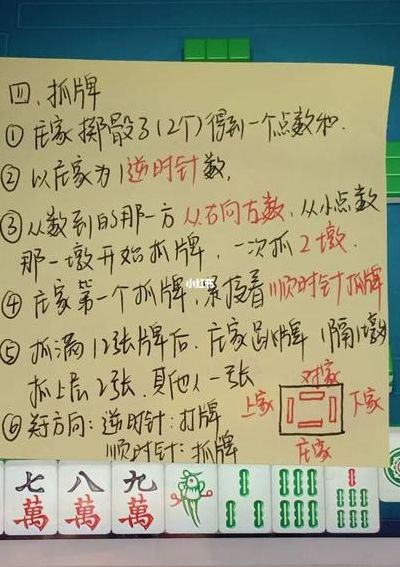 四、抓牌
① 庄家掷骰子(2个)得到一个点数和.
② 以庄家为1逆时针数,
③ 从数到的那一方从右向左数,从小点数
那一墩开始抓牌,一次抓2墩.
④ 庄家第一个抓牌,紧接着顺时针抓牌
⑤ 抓满12张牌后,庄家跳牌(隔1墩)
抓上层2张,其他人一张
⑥ 方向:逆时针:打牌
顺时针:抓牌
对家
上家
下家
庄家
小红书
七萬
八萬
九萬